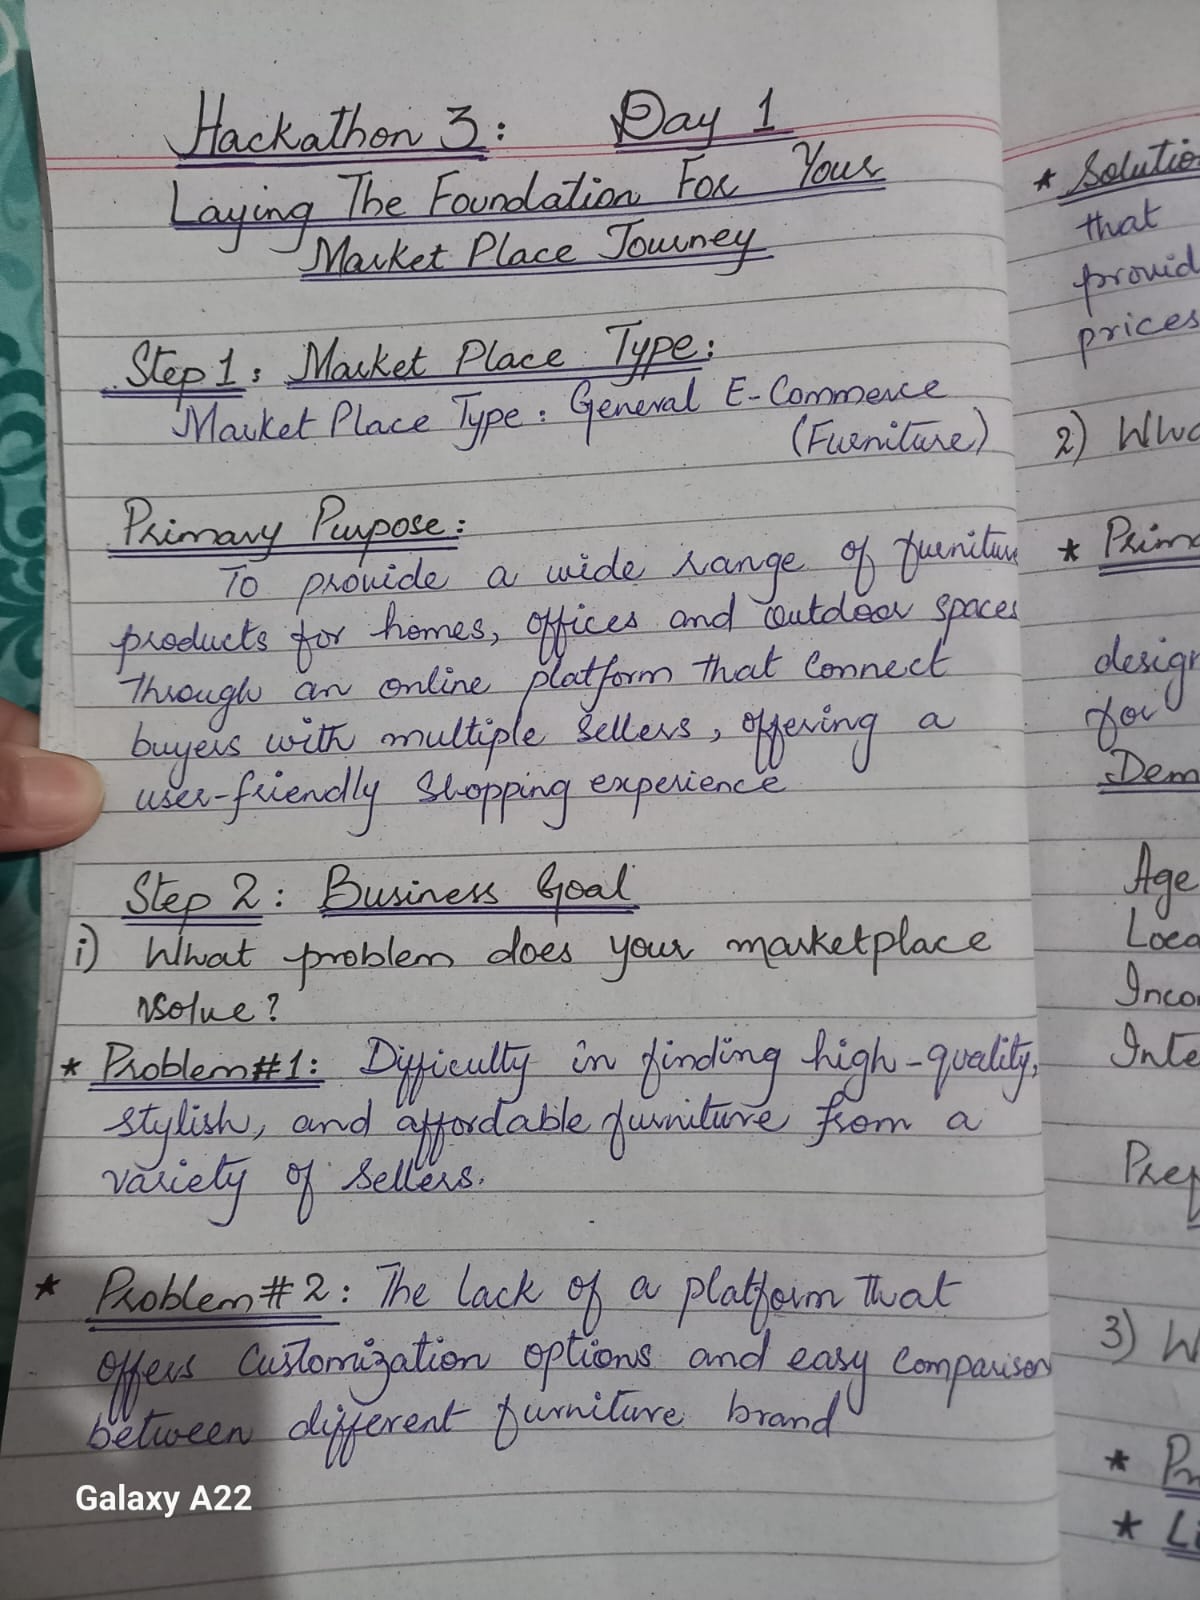 Hackathon 3: Day 1
Laying The Foundation For Your
Market Place Journey
Step 1: Market Place Type:
Market Place Type: General E-Commerce
(Furniture)
Primary Purpose:
To provide a wide range of furniture
products for homes, offices and outdoor spaces
through an online platform that connect
buyers with multiple sellers, offering a
user-friendly shopping experience
Step 2: Business Goal
i) What problem does your marketplace
solve?
* Problem#1: Difficulty in finding high-quality,
stylish, and affordable furniture from a
variety of sellers.
* Problem#2: The lack of a platform that
offers customization options and easy comparison
between different furniture brand
* Solutio
that
provid
prices
2) Wh
* Prim
design
for
Dem
Age
Loca
Inco
Inte
Pref
3) W
* Pr
* Li
Galaxy A22